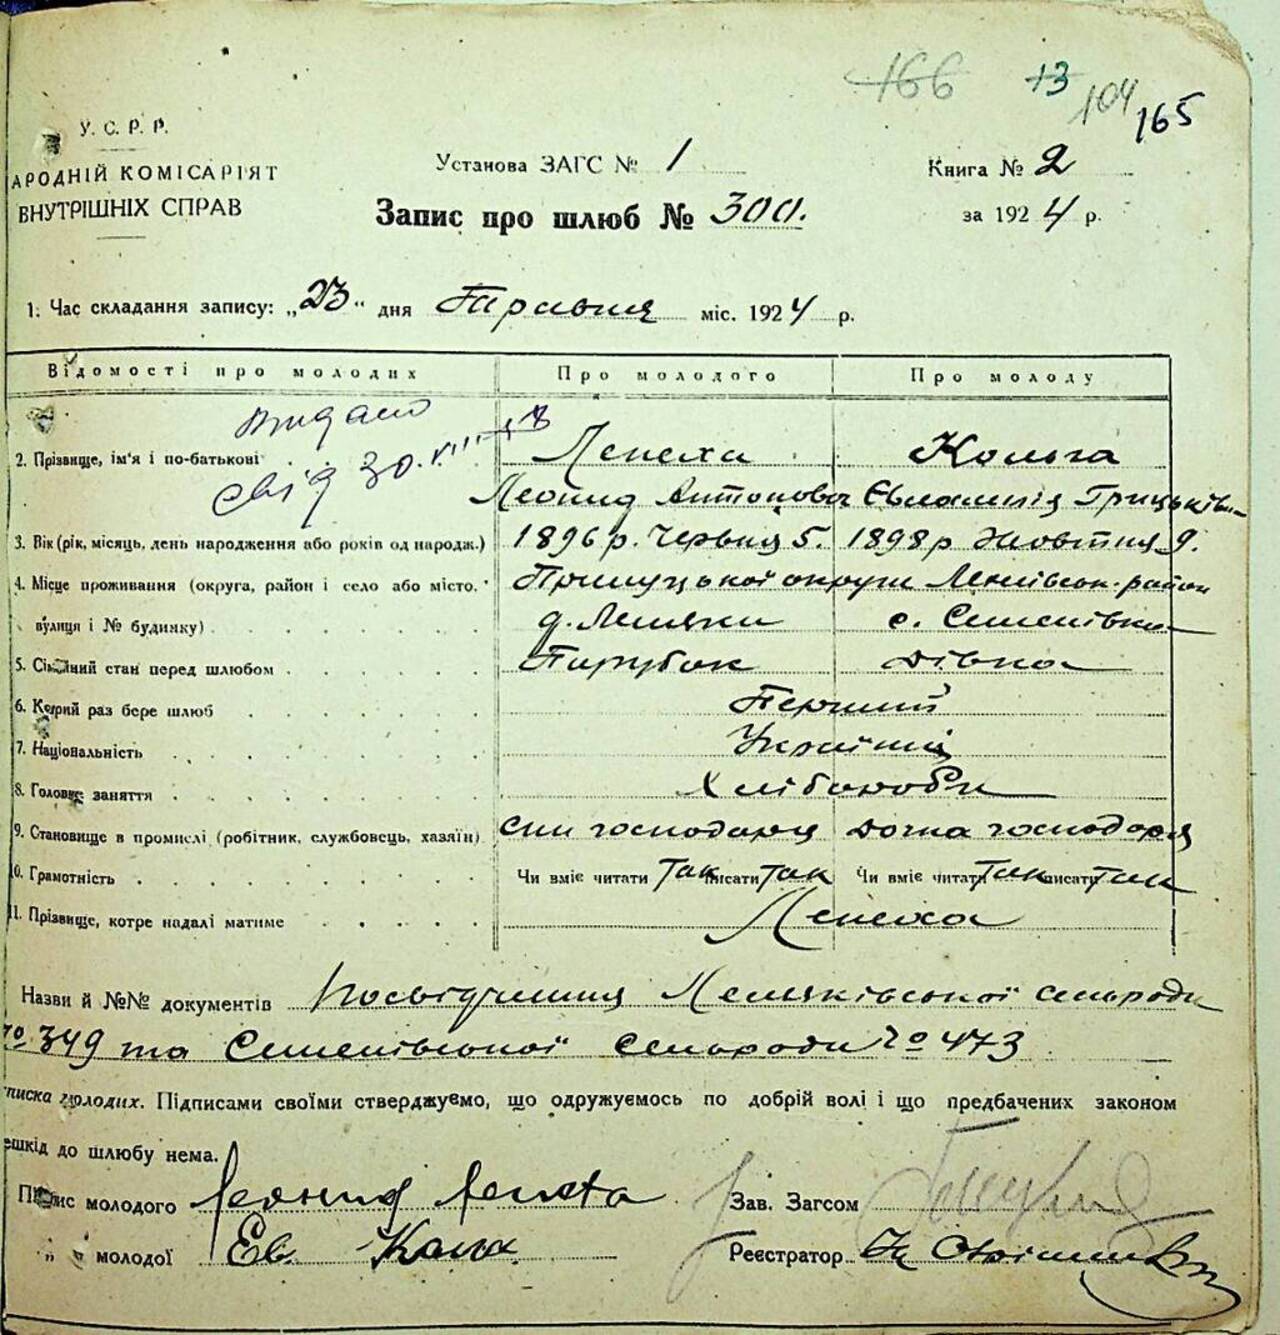 166 13 104 165
У. С. Р. Р.
АРОДНІЙ КОМІСАРІЯТ
ВНУТРІШНІХ СПРАВ
Установа ЗАГС № 1
Книга № 2
Запис про шлюб № 300.
за 1924 р.
1. Час складання запису: „23" дня Травня міс. 1924 р.
Відомості про молодих Про молодого Про молоду
Видано
свід 30.VIII
2. Прізвище, ім'я і по-батькові Лепеха Кольга
Леонид Антонович Євлампія Грицьківн
3. Вік (рік, місяць, день народження або років од народж.) 1896 р. Червня 5. 1898 р Жовтня 9.
4. Місце проживання (округа, район і село або місто. Прилуцької округи район
вулиця і № будинку) с. Семенівка
5. Сімейний стан перед шлюбом Парубок Дівка
6. Котрий раз бере шлюб Перший
7. Національність Українці
8. Головне заняття Хлібороби
9. Становище в промислі (робітник, службовець, хазяїн) син господаря дочка господаря
10. Грамотність Чи вміє читати Так писати Так Чи вміє читати Так писати Так
11. Прізвище, котре надалі матиме Лепеха
Назви й №№ документів Посвідчення Леляківської сельради
№ 349 та Семенівської сельради № 473
писка молодих. Підписами своїми стверджуємо, що одружуємось по добрій волі і що предбачених законом
ешкід до шлюбу нема.
Підпис молодого Леонид Лепеха Зав. Загсом
„ „ молодої Ев. Реєстратор